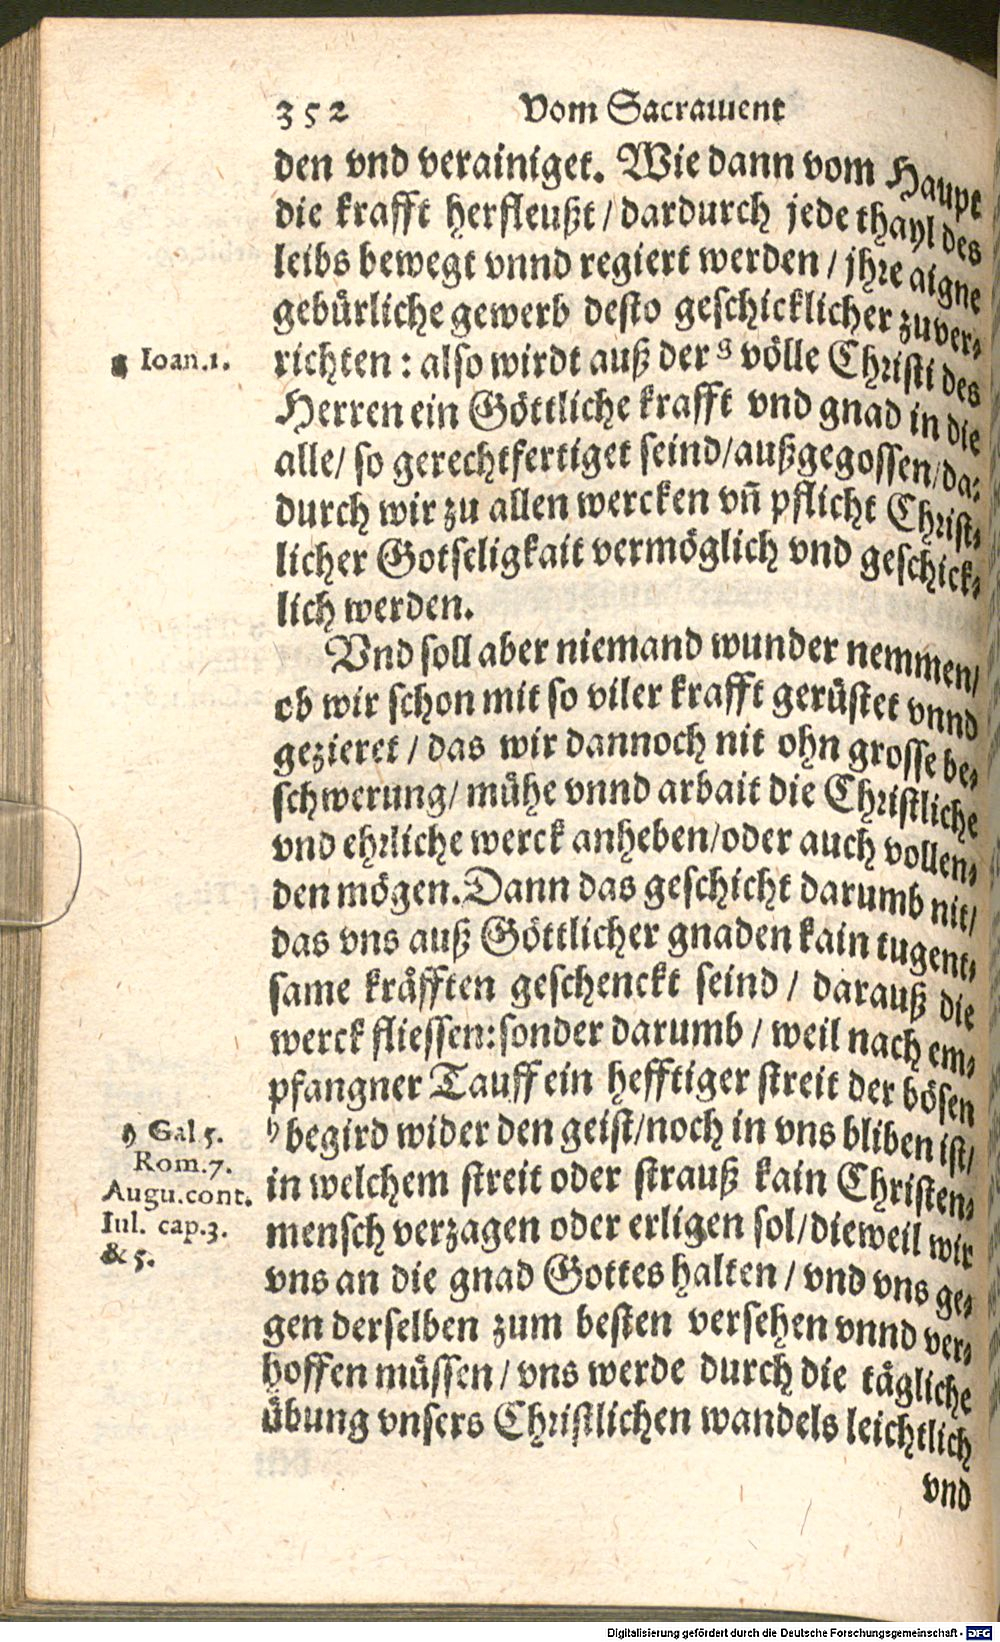 352 Vom Sacrament
den vnd verainiget. Wie dann vom Haupt
die krafft herfleußt / dardurch jede thayl des
leibs bewegt vnnd regiert werden / jhre aigne
gebürliche gewerb desto geschicklicher zuver-
g Ioan.1.
richten : also wirdt auß der g völle Christi des
Herren ein Göttliche krafft vnd gnad in die
alle / so gerechtfertiget seind / außgegossen / da-
durch wir zu allen wercken vñ pflicht Christ-
licher Gotseligkait vermöglich vnd geschick-
lich werden.
Vnd soll aber niemand wunder nemmen /
ob wir schon mit so viler krafft gerüstet vnnd
gezieret / das wir dannoch nit ohn grosse be-
schwerung / mühe vnnd arbait die Christliche
vnd ehrliche werck anheben / oder auch vollen-
den mögen. Dann das geschicht darumb nit /
das vns auß Göttlicher gnaden kain tugent-
same kräfften geschenckt seind / darauß die
werck fliessen: sonder darumb / weil nach em-
pfangner Tauff ein hefftiger streit der bösen
h Gal 5.
Rom.7.
Augu.cont.
Iul. cap.3.
& 5.
h begird wider den geist / noch in vns bliben ist /
in welchem streit oder strauß kain Christen-
mensch verzagen oder erligen sol / dieweil wir
vns an die gnad Gottes halten / vnd vns ge-
gen derselben zum besten versehen vnnd ver-
hoffen müssen / vns werde durch die tägliche
übung vnsers Christlichen wandels leichtlich
vnd
Digitalisierung gefördert durch die Deutsche Forschungsgemeinschaft - DFG